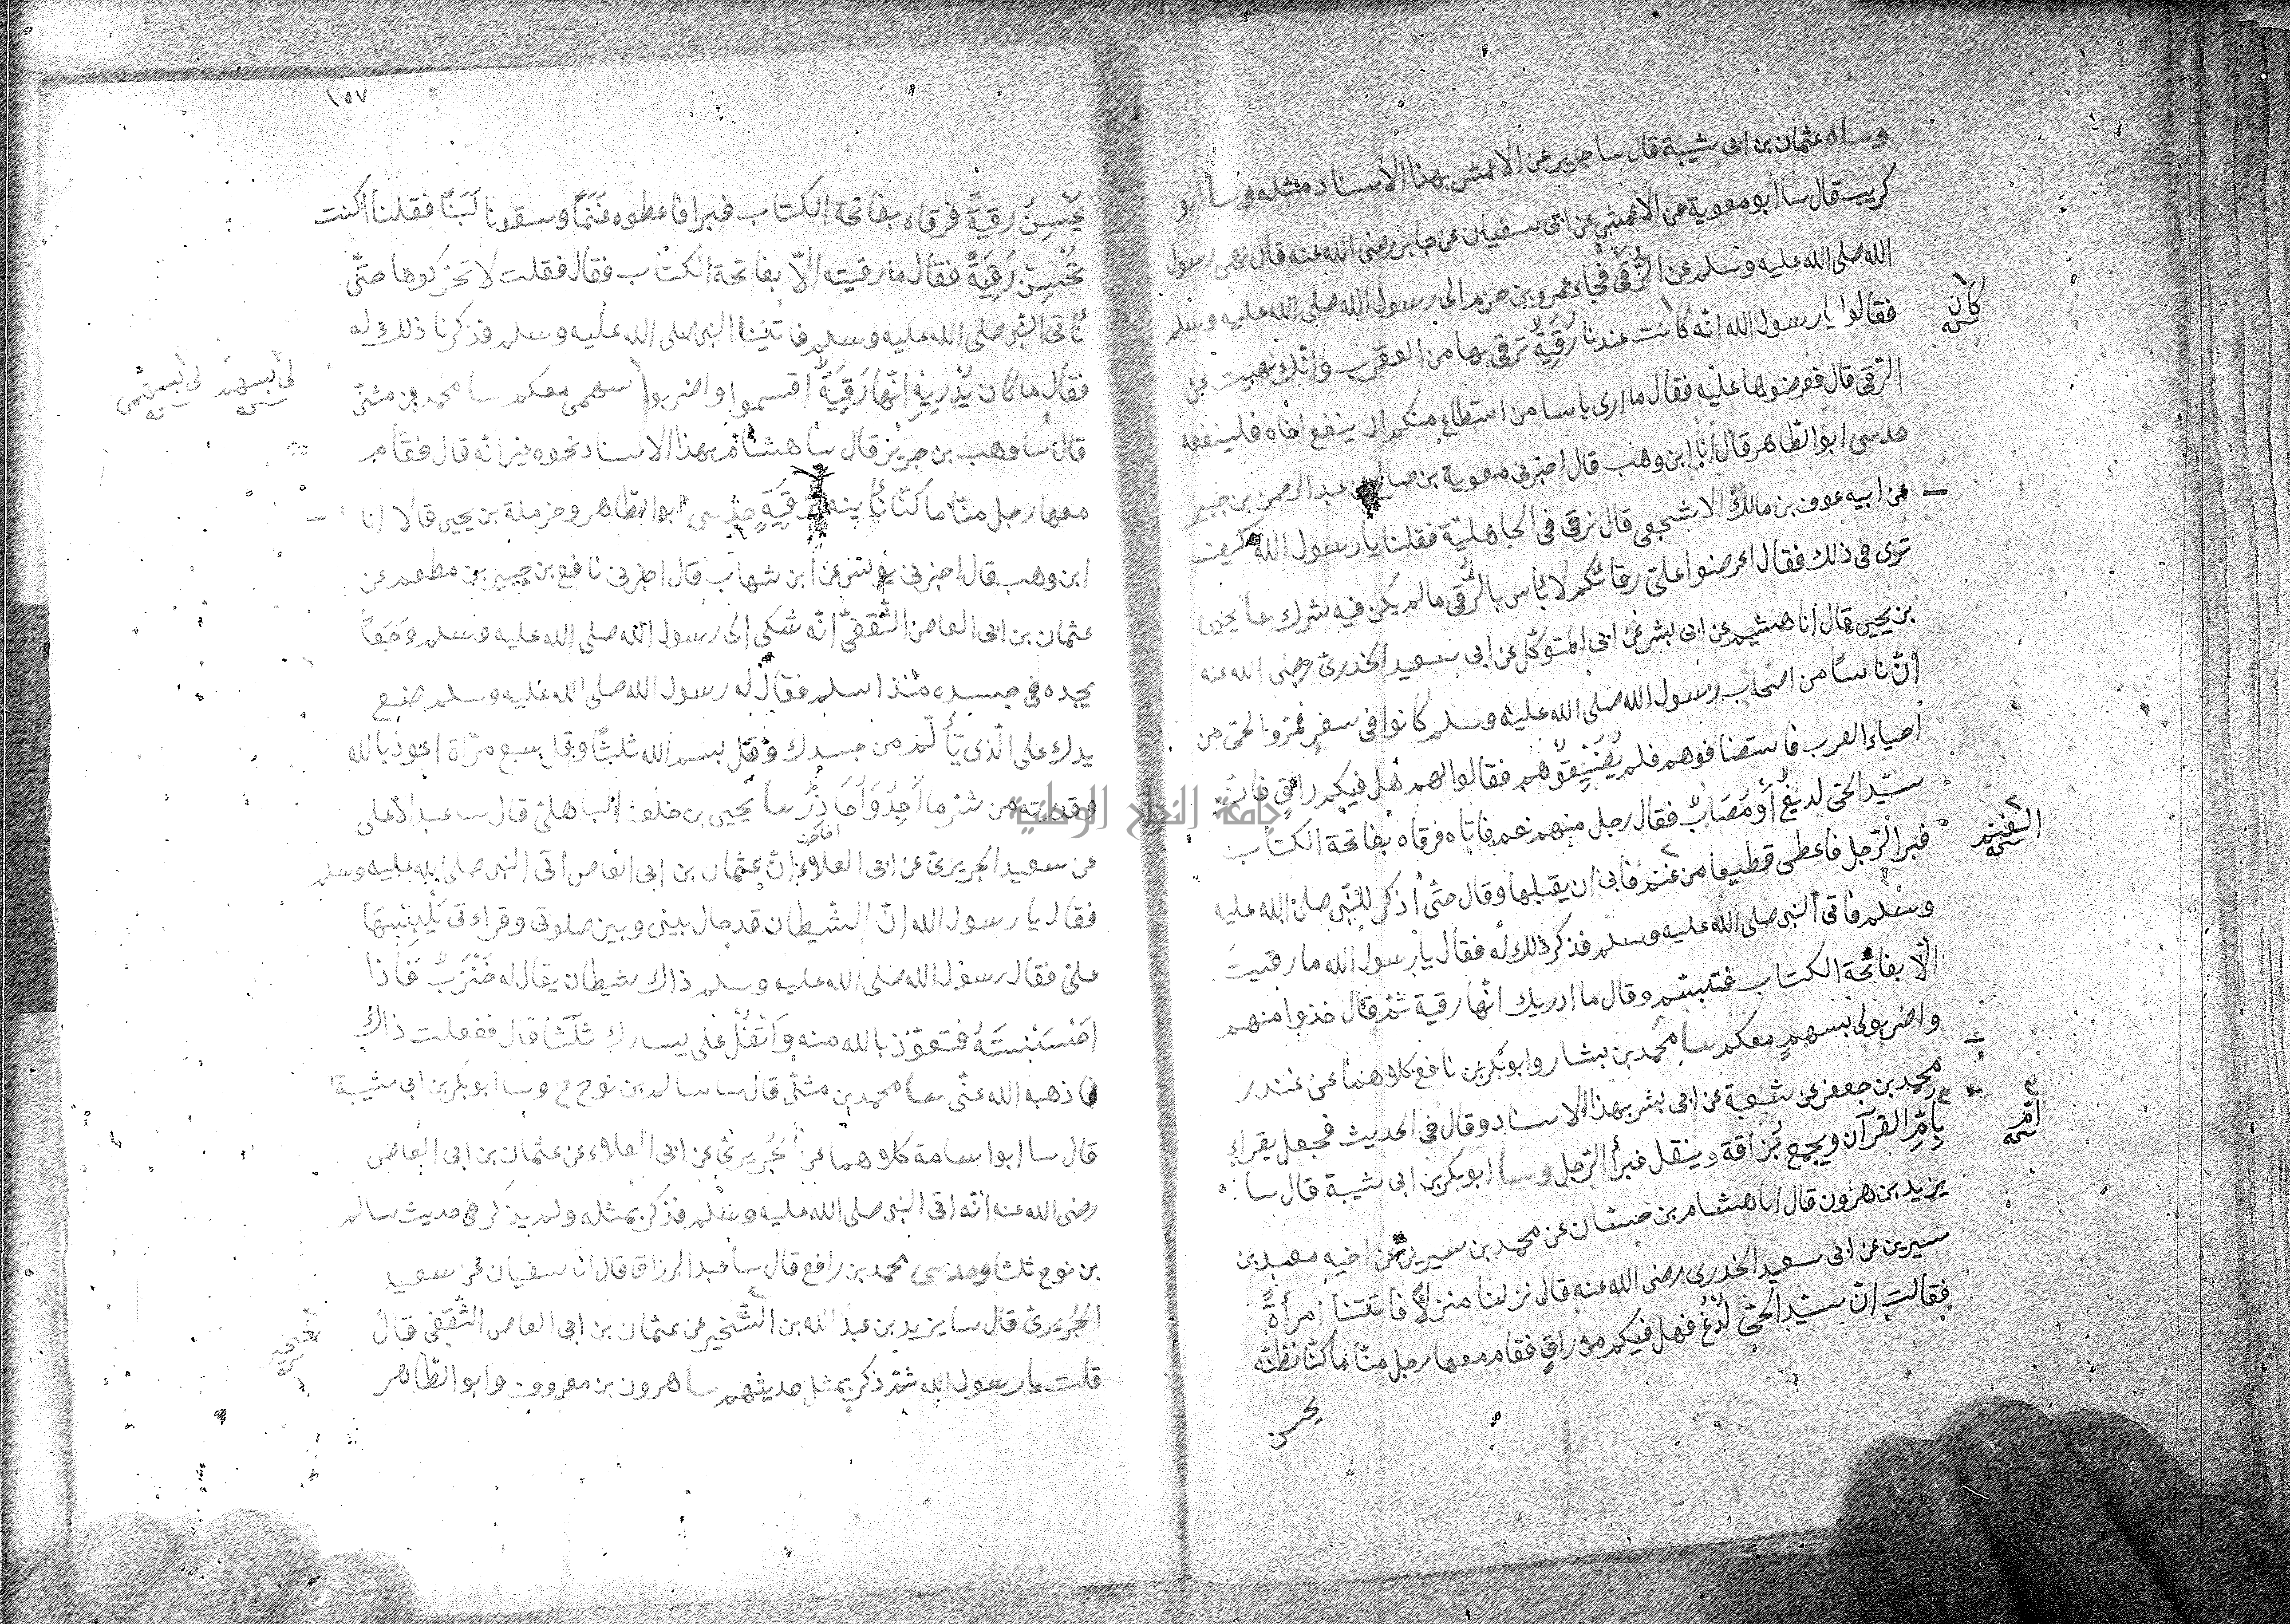 وساه عثمان بن ابى شيبة قال سا جرير عن الاعمش بهذا الاسناد مثله وسا ابو
كريب قال سا ابو معوية عن الاعمش عن ابى سفيان عن جابر رضى الله عنه قال نهى رسول
الله صلى الله عليه وسلم عن الرُّقَى فجاء عمرو بن حزم الى رسول الله صلى الله عليه وسلم
فقالوا يا رسول الله انّه كانت عندنا رُقيَةٌ نرقى بها من العقرب وانّك نهيت عن
كان
الرّقى قال فعرضوها عليه فقال ما ارى باسا من استطاع منكم ان ينفع اخاه فلينفعه
حدسى ابو الطّاهر قال انا ابن وهب قال اخبرنى معوية بن صالح عن عبد الرحمن بن جبير
عن ابيه عوف بن مالك الاشجعى قال نرقى فى الجاهليّة فقلنا يا رسول الله كيف
ترى فى ذلك فقال اعرضوا علىّ رقائكم لا بأس بالرُّقى ما لم يكن فيه شرك سا يحيى
بن يحيى قال انا هشيم عن ابى بشر عن ابى المتوكّل عن ابى سعيد الخدرىّ رضى الله عنه
انّ ناسًا من اصحاب رسول الله صلى الله عليه وسلم كانوا فى سفرٍ فمرّوا بحىّ من
احياء العرب فاستضافوهم فلم يُضَيِّفُوهُم فقالوا لهم هل فيكم راقٍ فانّ
سيّد الحىّ لديغٌ أو مُصَابٌ فقال رجل منهم نعم فاتاه فرقاه بفاتحة الكتاب
فبرا الرّجل فاعطى قطيعا من غنم فابى ان يقبلها وقال حتّى اذكر للنّبى صلى الله عليه
الغنم
وسلم فاتى النبى صلى الله عليه وسلم فذكر ذلك له فقال يا رسول الله ما رقيت
الّا بفاتحة الكتاب فتبسّم وقال ما ادريك انّها رقية ثمّ قال خذوا منهم
واضربوا لى بسهمٍ معكم سا محمد بن بشار وابو بكر بن نافع كلاهما عن غندر
محمد بن جعفر عن شعبة عن ابى بشر بهذا الاسناد وقال فى الحديث فجعل يقراء
بامِّ القرآن ويجمع بُزاقة ويتفل فبرأ الرّجل وسا ابو بكر بن ابى شيبة قال سا
امّ
يزيد بن هرون قال انا هشام بن حسّان عن محمد بن سيرين عن اخيه معبد بن
سيرين عن ابى سعيد الخدرى رضى الله عنه قال نزلنا منزلًا فاتتنا امرأةٌ
فقالت انّ سيّد الحىّ لُدِغَ فهل فيكم من راقٍ فقام معها رجل منّا ما كنّا نظنّه
يحسن
١٥٧
يُحْسِنُ رقيةً فرقاه بفاتحة الكتاب فبرا فاعطوه غَنَمًا وسقونا لَبَنًا فقلنا اكنت
تُحْسِنُ رَقِيَةً فقال ما رقيته الّا بفاتحة الكتاب فقال فقلت لا تحرّكوها حتّى
نأتى النّبى صلى الله عليه وسلم فاتينا النبى صلى الله عليه وسلم فذكرنا ذلك له
فقال ما كان يُدْرِيهِ انّها رَقِيَةٌ اقسموا واضربوا سهمى معكم سا محمد بن مثنّى
لى بسهم
لى بسهمى
قال سا وهب بن جرير قال سا هشام بهذا الاسناد نحوه غير انّه قال فقام
معها رجل منّا ما كنّا نأبنه برقيَةٍ حدسى ابو الطّاهر وحرملة بن يحيى قالا انا
ابن وهب قال اخبرنى يونس عن ابن شهاب قال اخبرنى نافع بن جبير بن مطعم عن
عثمان بن ابى العاص الثّقفىّ انّه شكى الى رسول الله صلى الله عليه وسلم وَجَعًا
يجده فى جسده منذ اسلم فقال له رسول الله صلى الله عليه وسلم ضع
يدك على الّذى تألّم من جسدك وقل بسم الله ثلثًا وقل سبع مرّاة اعوذ بالله
وقدرته من شرّ ما أَجِدُ وَأُحَاذِرُ سا يحيى بن خلف الباهلىّ قال سا عبد الاعلى
عن سعيد الجريرىّ عن ابى العلاء انّ عثمان بن ابى العاص اتى النبى صلى الله عليه وسلم
فقال يا رسول الله انّ الشيطان قد حال بينى وبين صلوتى وقراءتى يَلْبِسُهَا
علىّ فقال رسول الله صلى الله عليه وسلم ذاك شيطان يقال له خَنْزَبٌ فَاذا
احْسَسْتَهُ فتعوّذ بالله منه وَاتْفُلْ على يسارك ثلَثًا قال ففعلت ذاك
فاذهبه الله عنّى سا محمد بن مثنّى قال سا سالم بن نوح ح وسا ابو بكر بن ابى شيبة
قال سا ابو اسامة كلاهما عن الجُرَيرىّ عن ابى العلاء عن عثمان بن ابى العاص
رضى الله عنه انّه اتى النبى صلى الله عليه وسلم فذكر بمثله ولم يذكر فى حديث سالم
بن نوح ثلثا وحدسى محمد بن رافع قال سا عبد الرزاق قال انا سفيان عن سعيد
الجُرَيرىّ قال سا يزيد بن عبد الله بن الشّخير عن عثمان بن ابى العاص الثّقفى قال
شخير
قلت يا رسول الله ثمّ ذكر بمثل حديثهم سا هرون بن معروف وابو الطّاهر
جامعة النجاح الوطنية